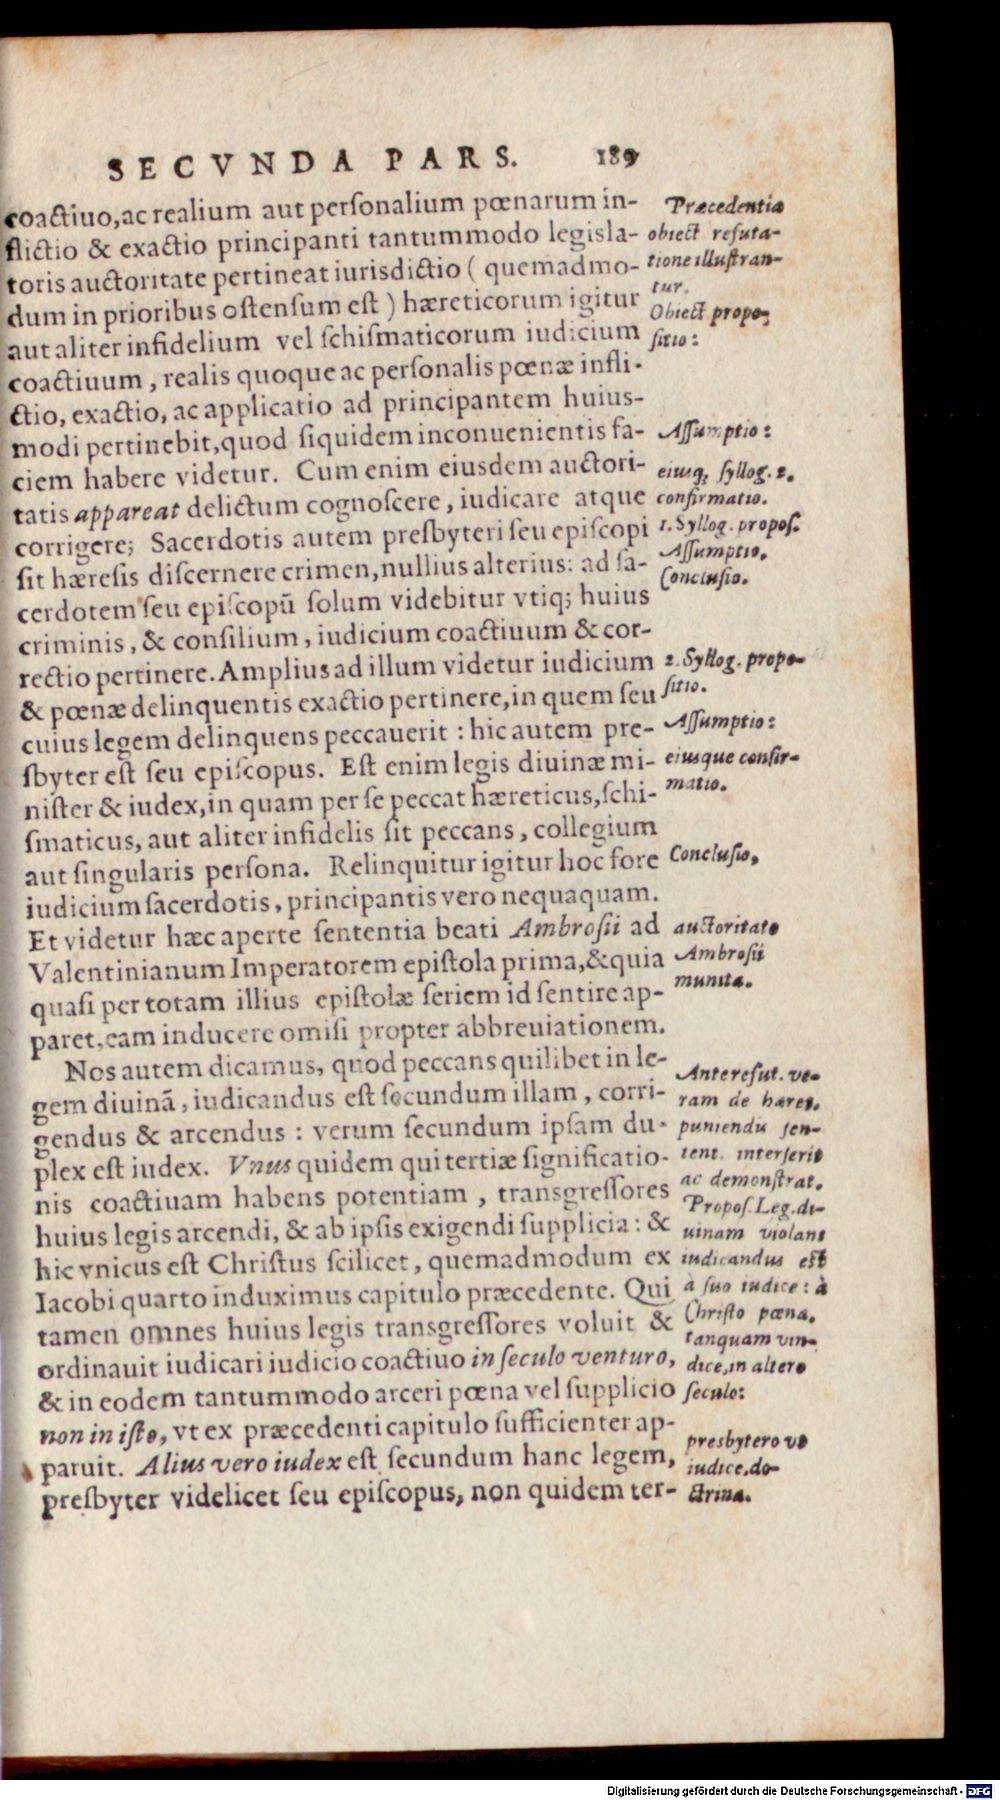 SECVNDA PARS. 189
coactiuo,ac realium aut perſonalium pœnarum in-
flictio & exactio principanti tantummodo legisla-
toris auctoritate pertineat iurisdictio ( quemadmo-
dum in prioribus oſtenſum eſt ) hæreticorum igitur
aut aliter infidelium vel ſchiſmaticorum iudicium
coactiuum , realis quoque ac perſonalis pœnæ infli-
ctio, exactio, ac applicatio ad principantem huius-
modi pertinebit,quod ſiquidem inconuenientis fa-
ciem habere videtur. Cum enim eiusdem auctori-
tatis appareat delictum cognoſcere, iudicare atque
corrigere; Sacerdotis autem presbyteri ſeu epiſcopi
ſit hæreſis diſcernere crimen,nullius alterius: ad ſa-
cerdotem ſeu epiſcopū ſolum videbitur vtiq; huius
criminis, & conſilium, iudicium coactiuum & cor-
rectio pertinere. Amplius ad illum videtur iudicium
& pœnæ delinquentis exactio pertinere,in quem ſeu
cuius legem delinquens peccauerit : hic autem pre-
sbyter eſt ſeu epiſcopus. Eſt enim legis diuinæ mi-
niſter & iudex,in quam per ſe peccat hæreticus,ſchi-
ſmaticus, aut aliter infidelis ſit peccans, collegium
aut ſingularis perſona. Relinquitur igitur hoc fore
iudicium ſacerdotis, principantis vero nequaquam.
Et videtur hæc aperte ſententia beati Ambroſii ad
Valentinianum Imperatorem epiſtola prima,&quia
quaſi per totam illius epiſtolæ ſeriem id ſentire ap-
paret,eam inducere omiſi propter abbreuiationem.
Nos autem dicamus, quod peccans quilibet in le-
gem diuinā, iudicandus eſt ſecundum illam , corri-
gendus & arcendus : verum ſecundum ipſam du-
plex eſt iudex. Vnus quidem qui tertiæ ſignificatio-
nis coactiuam habens potentiam , transgreſſores
huius legis arcendi, & ab ipſis exigendi ſupplicia: &
hic vnicus eſt Chriſtus ſcilicet, quemadmodum ex
Iacobi quarto induximus capitulo præcedente. Qui
tamen omnes huius legis transgreſſores voluit &
ordinauit iudicari iudicio coactiuo in ſeculo venturo,
& in eodem tantummodo arceri pœna vel ſupplicio
non in iſto, vt ex præcedenti capitulo ſufficienter ap-
paruit. Alius vero iudex eſt ſecundum hanc legem,
presbyter videlicet ſeu epiſcopus, non quidem ter-
Præcedentia
obiect refuta-
tione illuſtran-
tur.
Obiect propo-
ſitio:
Aſſumptio:
eiusq; ſyllog. 2.
confirmatio.
1. Syllog. propoſ.
Aſſumptio.
Concluſio.
2. Syllog. propo-
ſitio.
Aſſumptio:
eiusque confir-
matio.
Concluſio,
auctoritate
Ambroſii
munita.
Ante refut. ve-
ram de hæret.
puniendu ſen-
tent. interſerit
ac demonſtrat.
Propoſ. Leg. di-
uinam violans
iudicandus eſt
à ſuo iudice: à
Chriſto pœna,
tanquam vin-
dice,in altero
ſeculo:
presbytero vt
iudice,do-
ctrina.
Digitalisierung gefördert durch die Deutsche Forschungsgemeinschaft - DFG